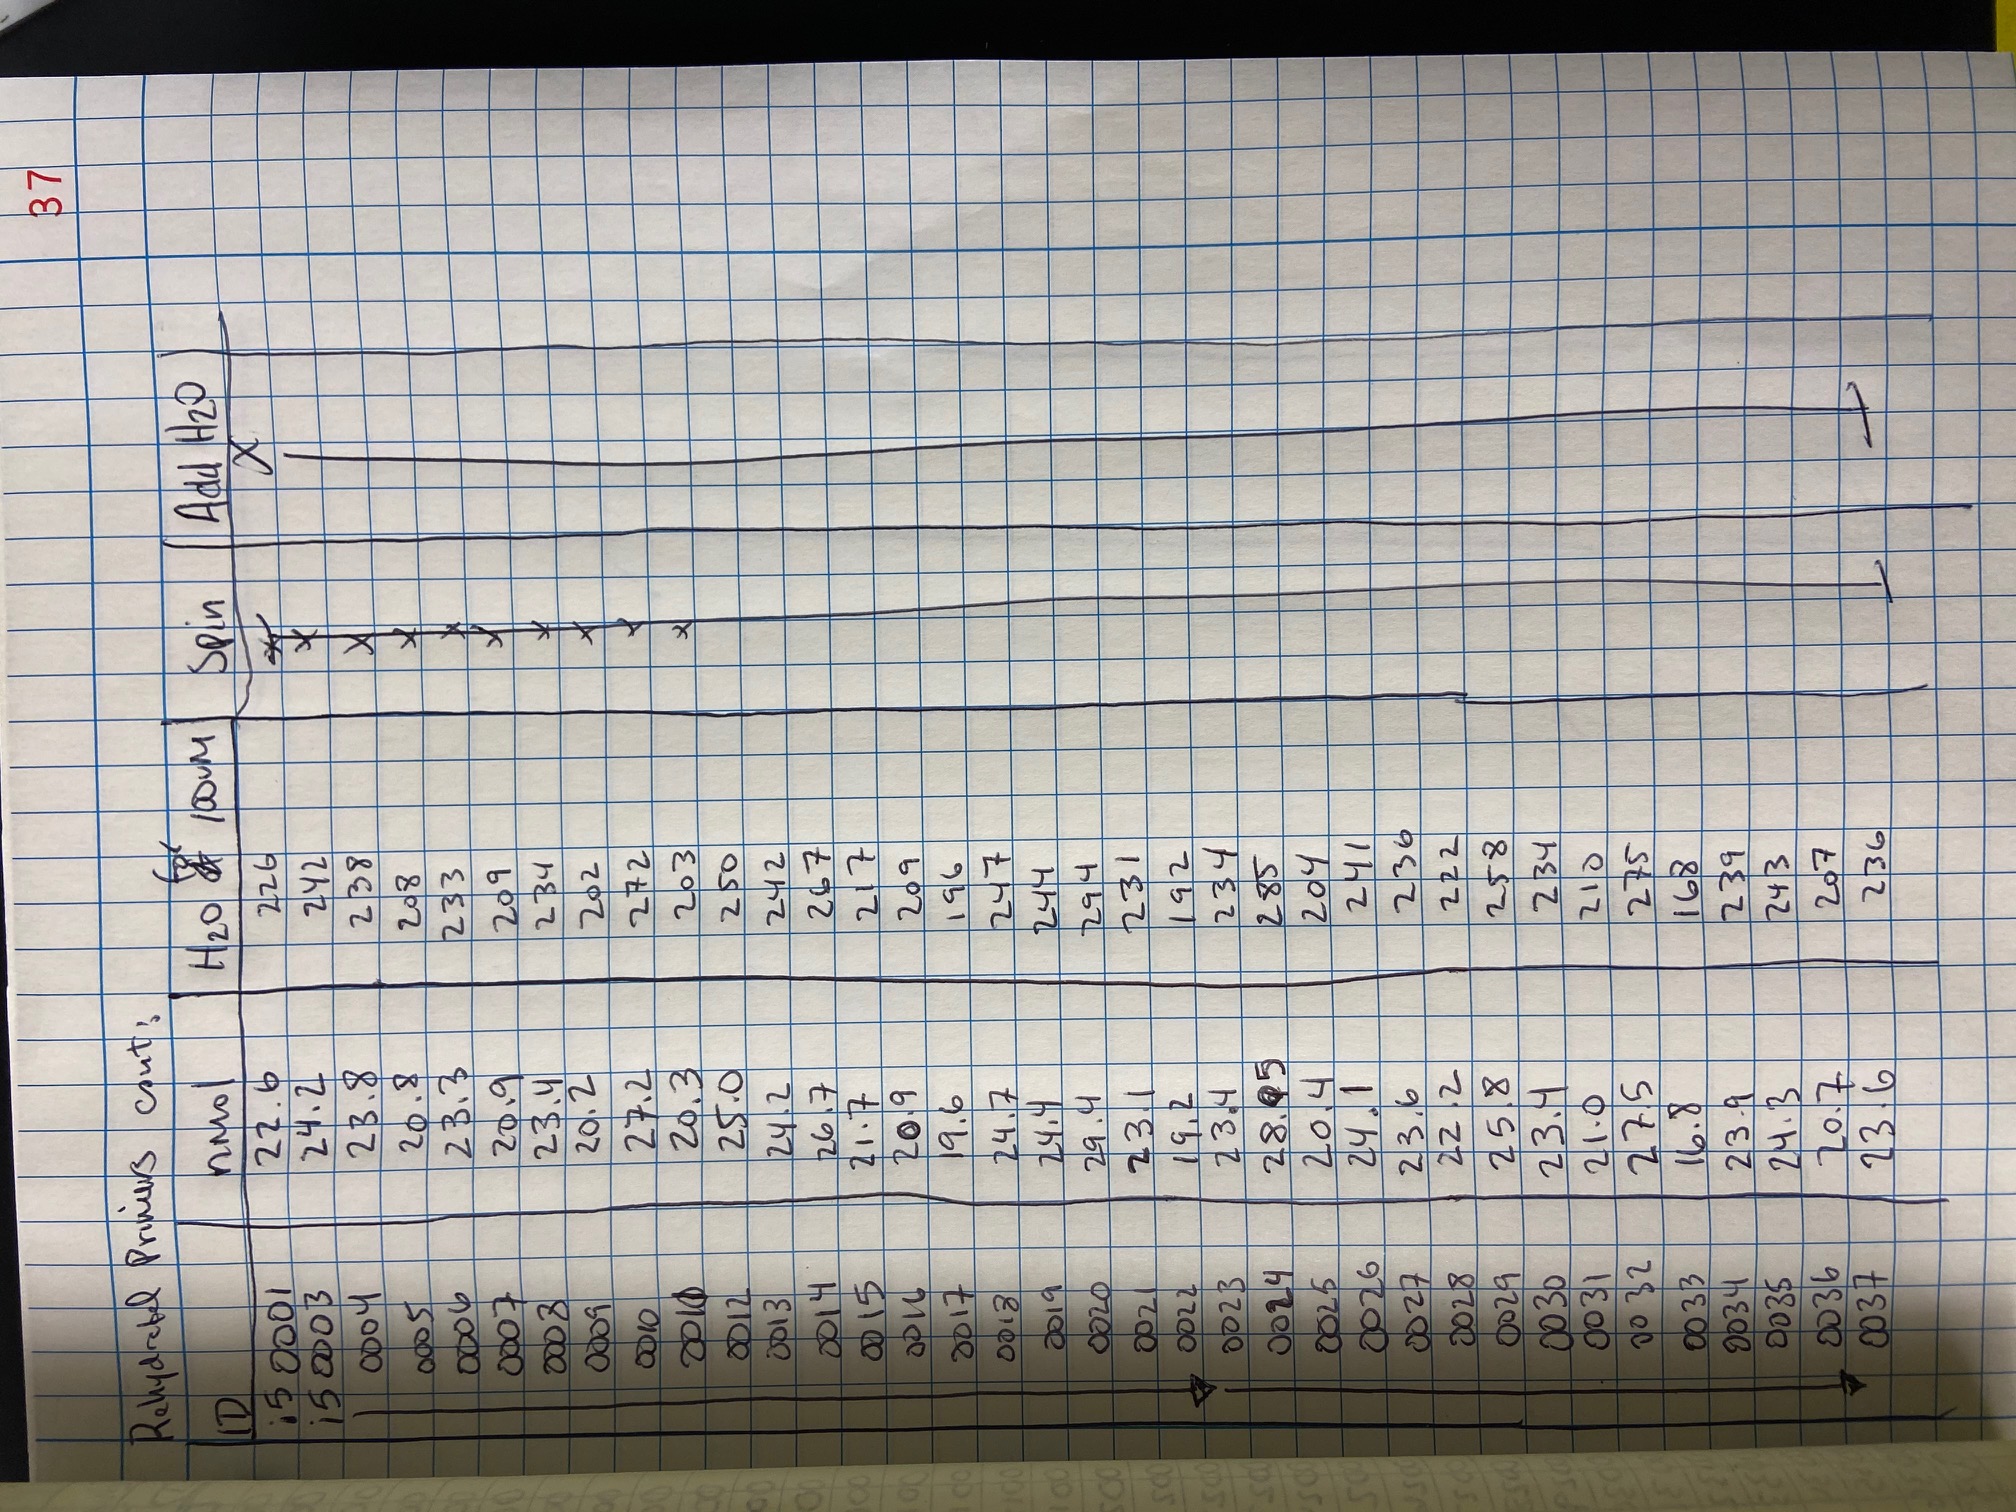 37
Rehydrated Primers cont:
ID nmol H2O for 100uM Spin Add H2O
i5 0001 22.6 226 x x
i5 0003 24.2 242 x
0004 23.8 238 x
0005 20.8 208 x
0006 23.3 233 x
0007 20.9 209 x
0008 23.4 234 x
0009 20.2 202 x
0010 27.2 272 x
0011 20.3 203 x
0012 25.0 250
0013 24.2 242
0014 26.7 267
0015 21.7 217
0016 20.9 209
0017 19.6 196
0018 24.7 247
0019 24.4 244
0020 29.4 294
0021 23.1 231
0022 19.2 192
0023 23.4 234
0024 28.5 285
0025 20.4 204
0026 24.1 241
0027 23.6 236
0028 22.2 222
0029 25.8 258
0030 23.4 234
0031 21.0 210
0032 27.5 275
0033 16.8 168
0034 23.9 239
0035 24.3 243
0036 20.7 207
0037 23.6 236